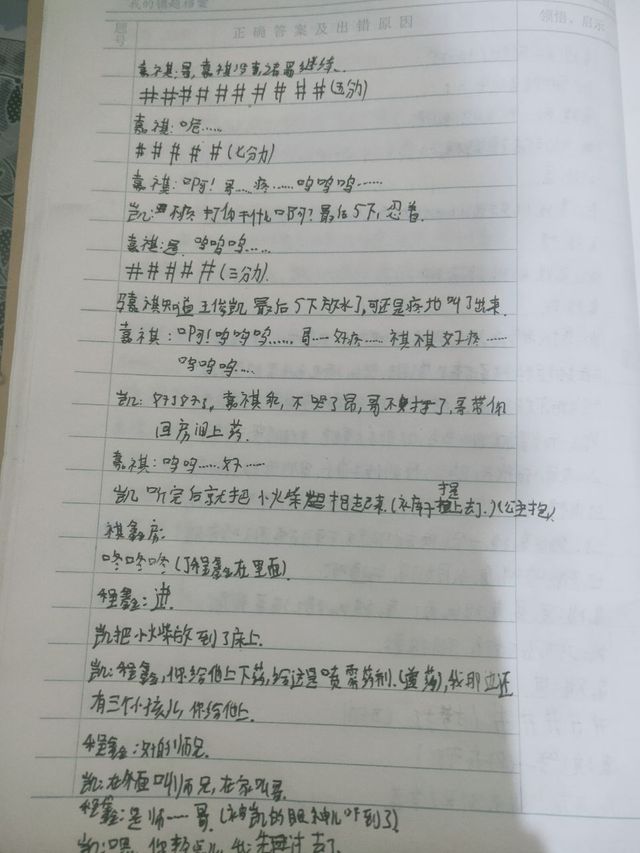 我的错题档案
题号 正确答案及出错原因 领悟、启示
嘉祺:哥,嘉祺没事诺哥继续.
#########(五分力)
嘉祺:呃……
#####(七分力)
嘉祺:啊!哥…疼……呜呜呜……
凯:不疼打你干什么啊?最后5下,忍着.
嘉祺:是 呜呜呜……
#####(三分力).
嘉祺知道王俊凯最后5下放水了,可还是疼地叫了出来.
嘉祺:啊!呜呜呜……哥…好疼……祺祺好疼……
呜呜呜…
凯:好了好了,嘉祺乖,不哭了昂,哥不打了,哥带你
回房间上药.
嘉祺:呜呜……好……
凯听完后就把小火柴抱起来.(裤子提上去了.)(公主抱)
祺鑫房:
咚咚咚(丁程鑫在里面).
程鑫:进.
凯把小火柴放到了床上.
凯:程鑫,你给他上下药,给这是喷雾药剂.(递药),我那边还
有三个小孩儿,你给他上.
程鑫:好的师兄.
凯:在外面叫师兄,在家叫哥.
程鑫:是师……哥.(被凯的眼神儿吓到了)
凯:嗯,你,我先过去了.